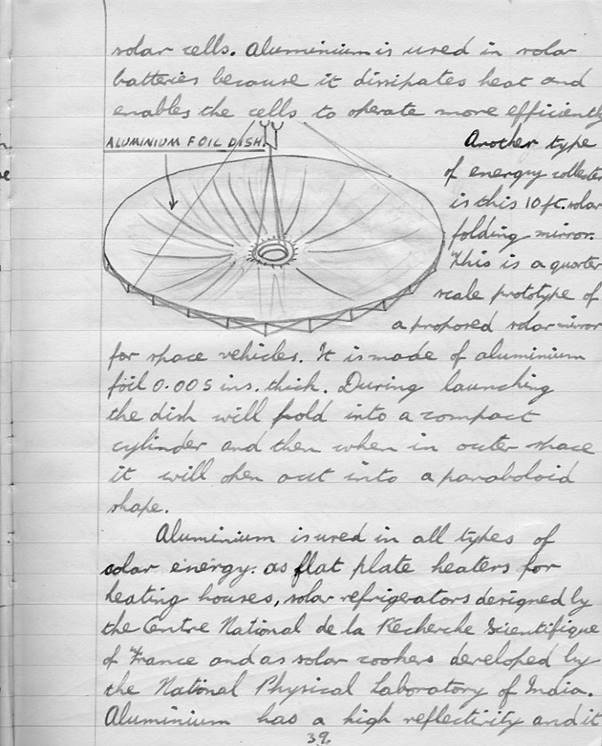 solar cells. Aluminium is used in solar
batteries because it dissipates heat and
enables the cells to operate more efficiently
ALUMINIUM FOIL DISH
Another type
of energy collector
is this 10 ft. solar
folding mirror.
This is a quarter
scale prototype of
a proposed solar mirror
for space vehicles. It is made of aluminium
foil 0.005 ins. thick. During launching
the dish will fold into a compact
cylinder and then when in outer space
it will open out into a paraboloid
shape.
Aluminium is used in all types of
solar energy: as flat plate heaters for
heating houses, solar refrigerators designed by
the Centre National de la Recherche Scientifique
of France and as solar cookers developed by
the National Physical Laboratory of India.
Aluminium has a high reflectivity and it
39